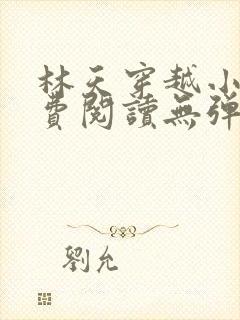 林天穿越小
費閱讀無彈
劉允